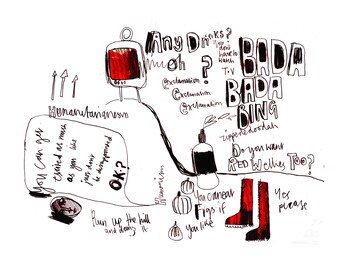 Any Drinks?
much ?
You
don't
have to
watch
T.V
BADA
BADA
BING
Exclamation
Exclamation
Exclamation
Humanitarianism
You can get
excited as much
as you like
just don't
be disappointed
OK?
Do you want
RED Wellies Too?
You can eat
Figs if
you like
Yes
please
Run up the hill
and down it